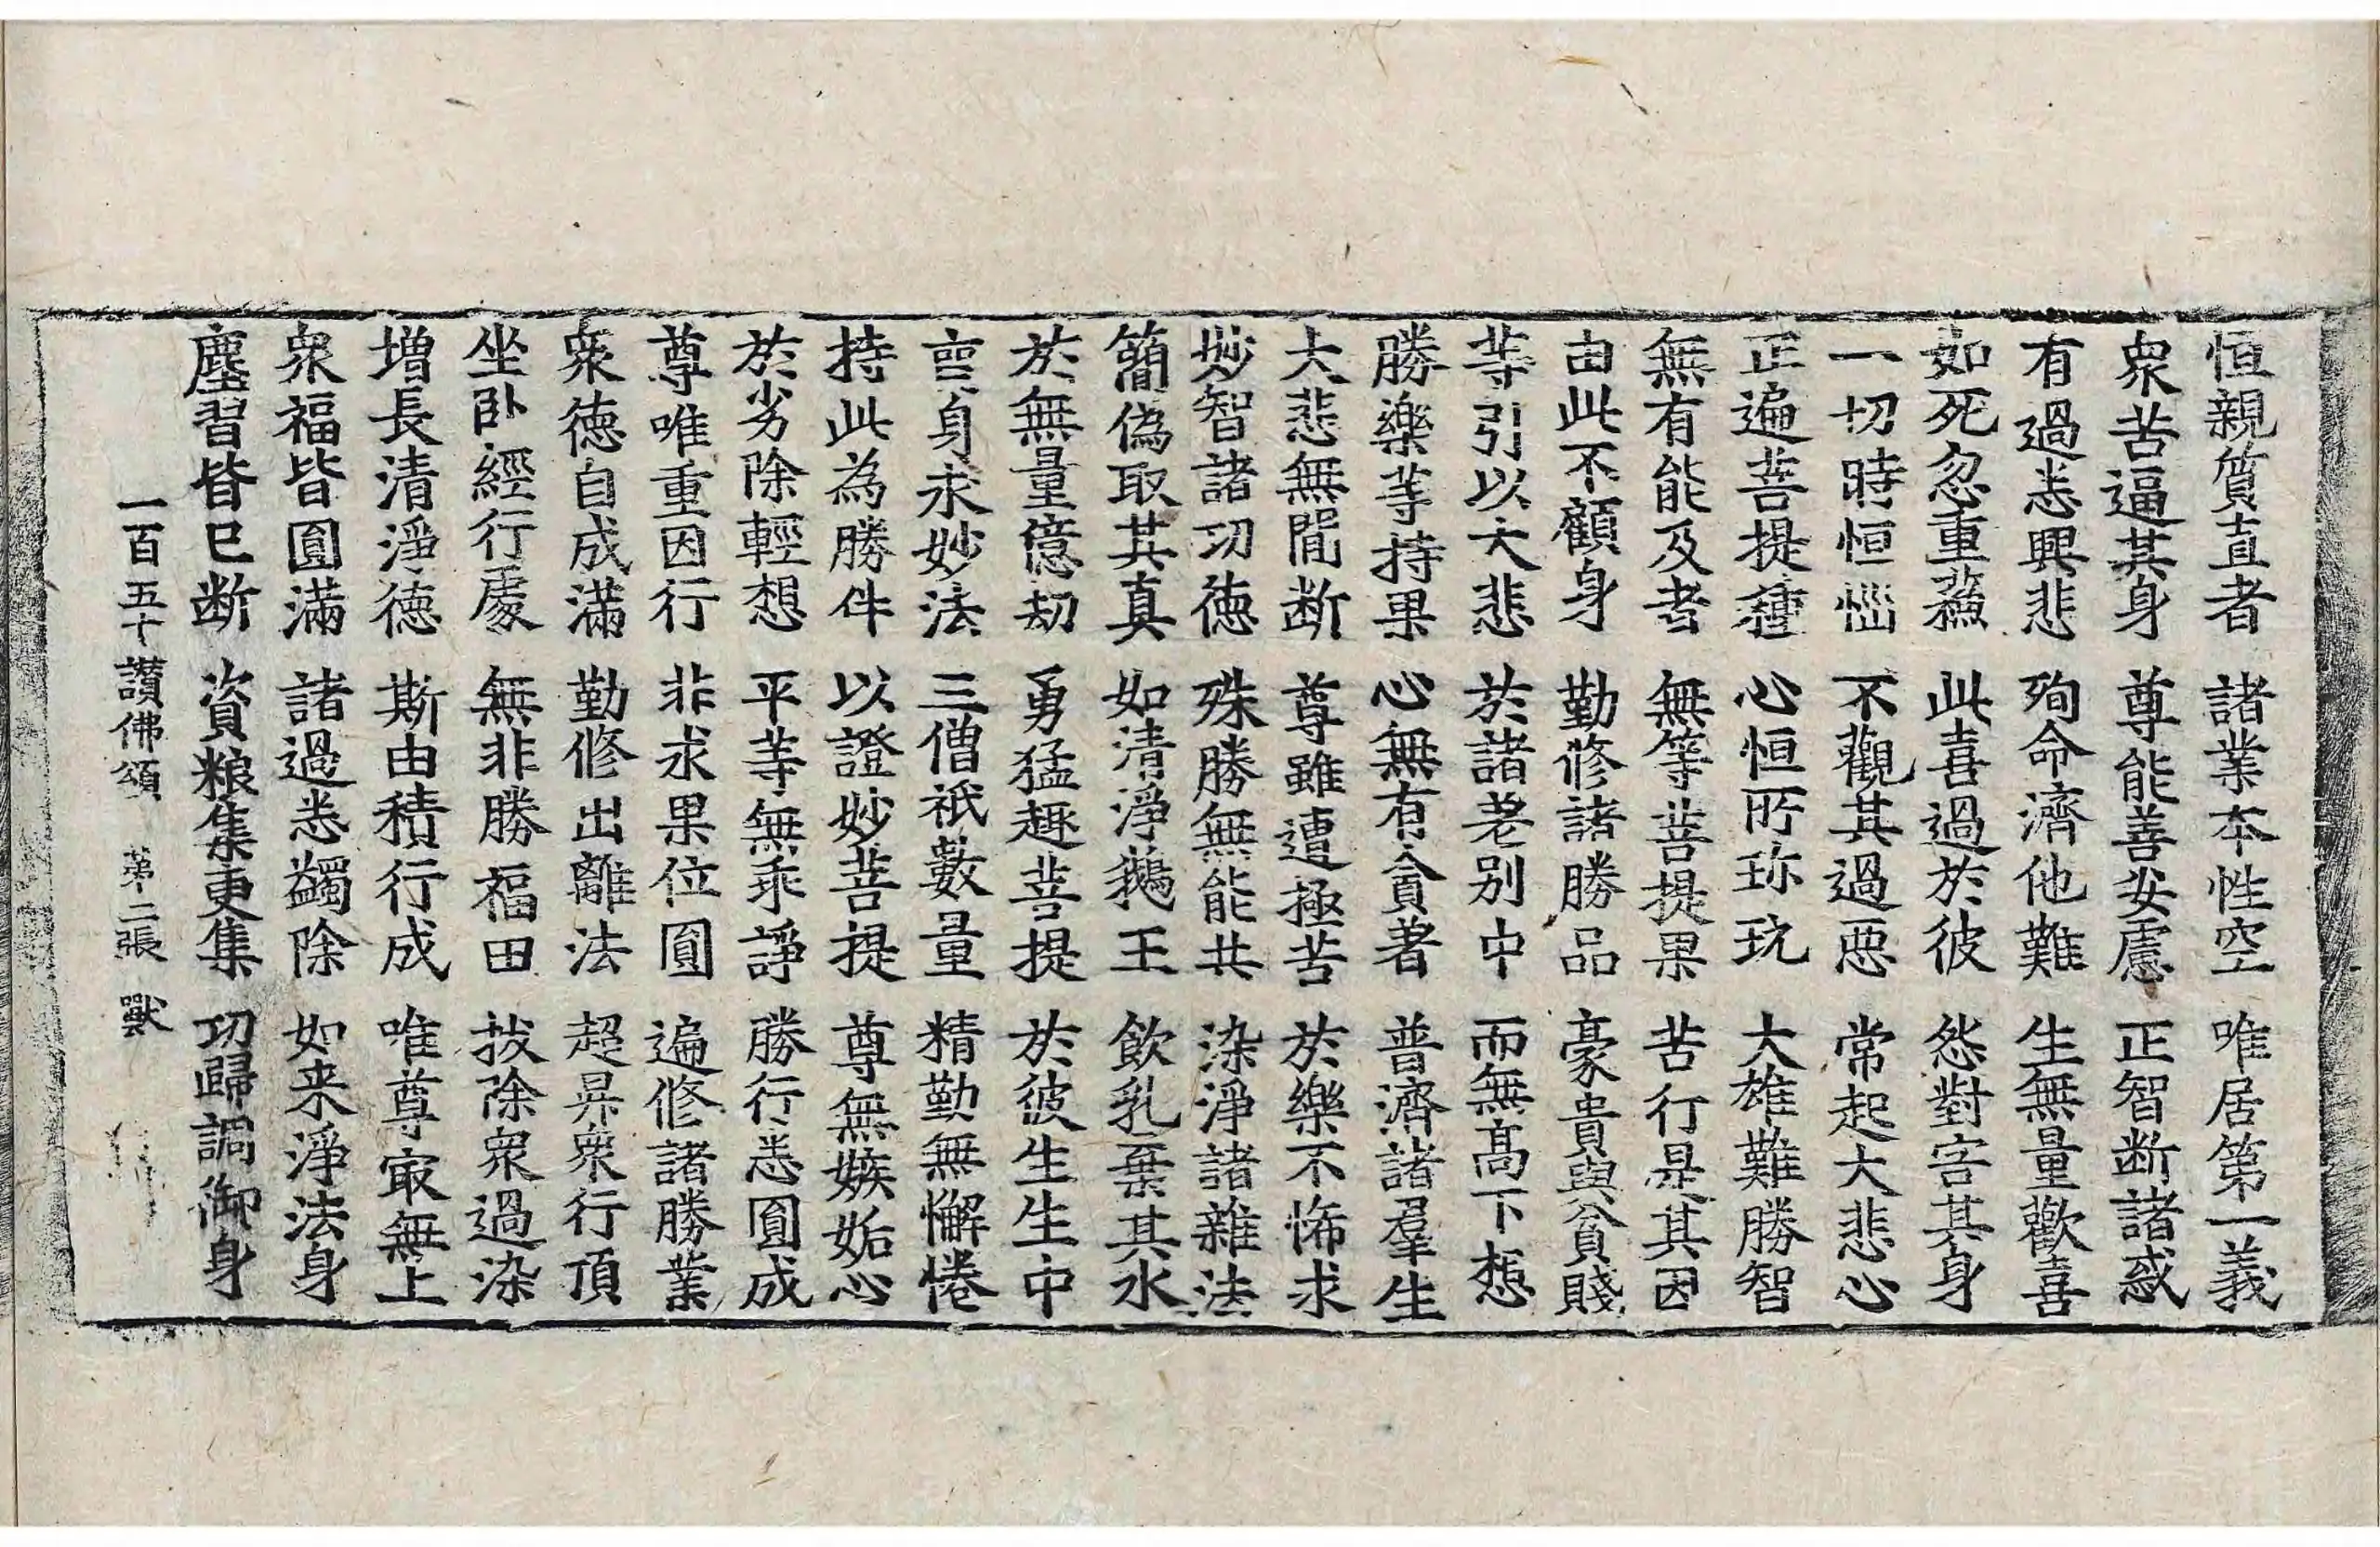 恒親質直者 諸業本性空 唯居第一義
衆苦逼其身 尊能善安慮 正智断諸惑
有過悉興悲 殉命濟他難 生無量歡喜
如死忽重蘇 此喜過於彼 怨對害其身
一切時恒惱 不觀其過惡 常起大悲心
正遍菩提種 心恒所珎玩 大雄難勝智
無有能及者 無等菩提果 苦行是其因
由此不顧身 勤修諸勝品 豪貴與貧賤
等引以大悲 於諸差別中 而無高下想
勝樂等持果 心無有貪著 普濟諸羣生
大悲無間断 尊雖遭極苦 於樂不悕求
妙智諸功德 殊勝無能共 染淨諸雜法
簡偽取其真 如清淨鵝王 飲乳棄其水
於無量億劫 勇猛趣菩提 於彼生生中
喪身求妙法 三僧祇數量 精勤無懈惓
持此為勝伴 以證妙菩提 尊無嫉妬心
於劣除輕想 平等無乖諍 勝行悉圓成
尊唯重因行 非求果位圓 遍修諸勝業
衆德自成滿 勤修出離法 超昇衆行頂
坐卧經行處 無非勝福田 拔除衆過染
增長清淨德 斯由積行成 唯尊㝡無上
衆福皆圓滿 諸過悉蠲除 如来淨法身
塵習皆已断 資粮集更集 功歸調御身
一百五十讃佛頌 苐二張 獸